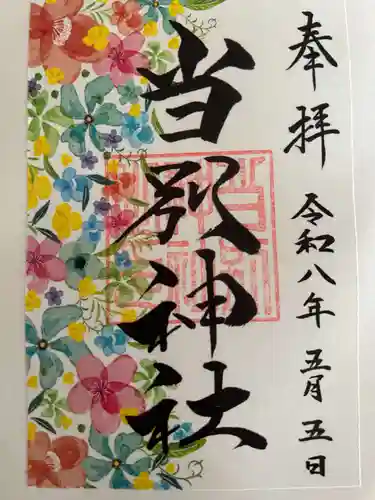 奉拝
令和八年 五月 五日
当別神社